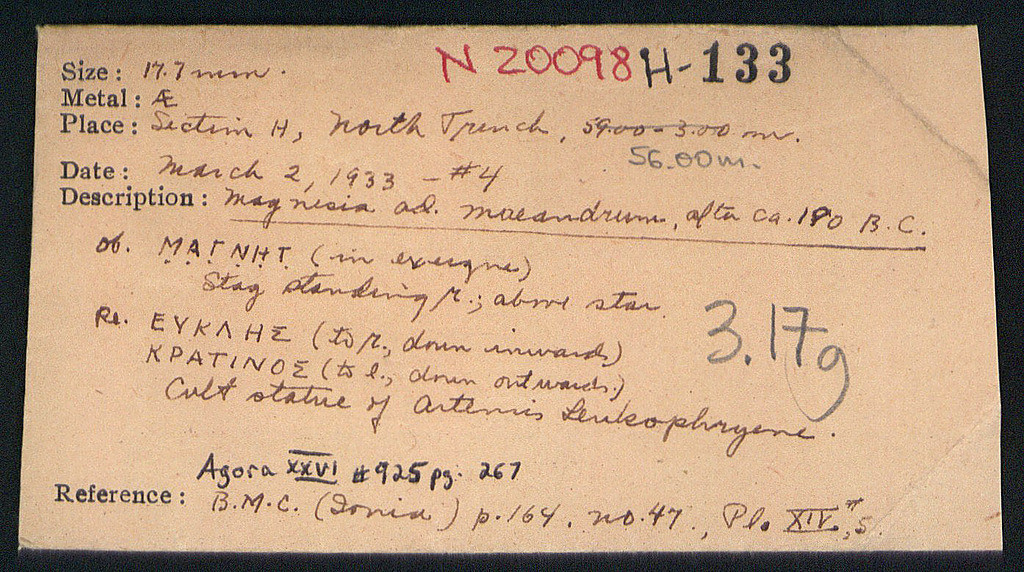 N 20098 H-133
Size : 17.7 mm.
Metal : Æ
Place : Section H, North Trench, 59.00-3.00 m.
56.00m.
Date : March 2, 1933 - #4
Description : Magnesia ad. Maeandrum, after ca. 190 B.C.
Ob. ΜΑΓΝΗΤ (in exergue)
Stag standing r.; above star.
Re. ΕΥΚΛΗΣ (to r., down inwards)
ΚΡΑΤΙΝΟΣ (to l., down outwards.)
3.17g
Cult statue of Artemis Leukophryene.
Agora XXVI #925 pg. 267
Reference : B.M.C. (Ionia) p. 164. no. 47., Pl. XIX, 5.